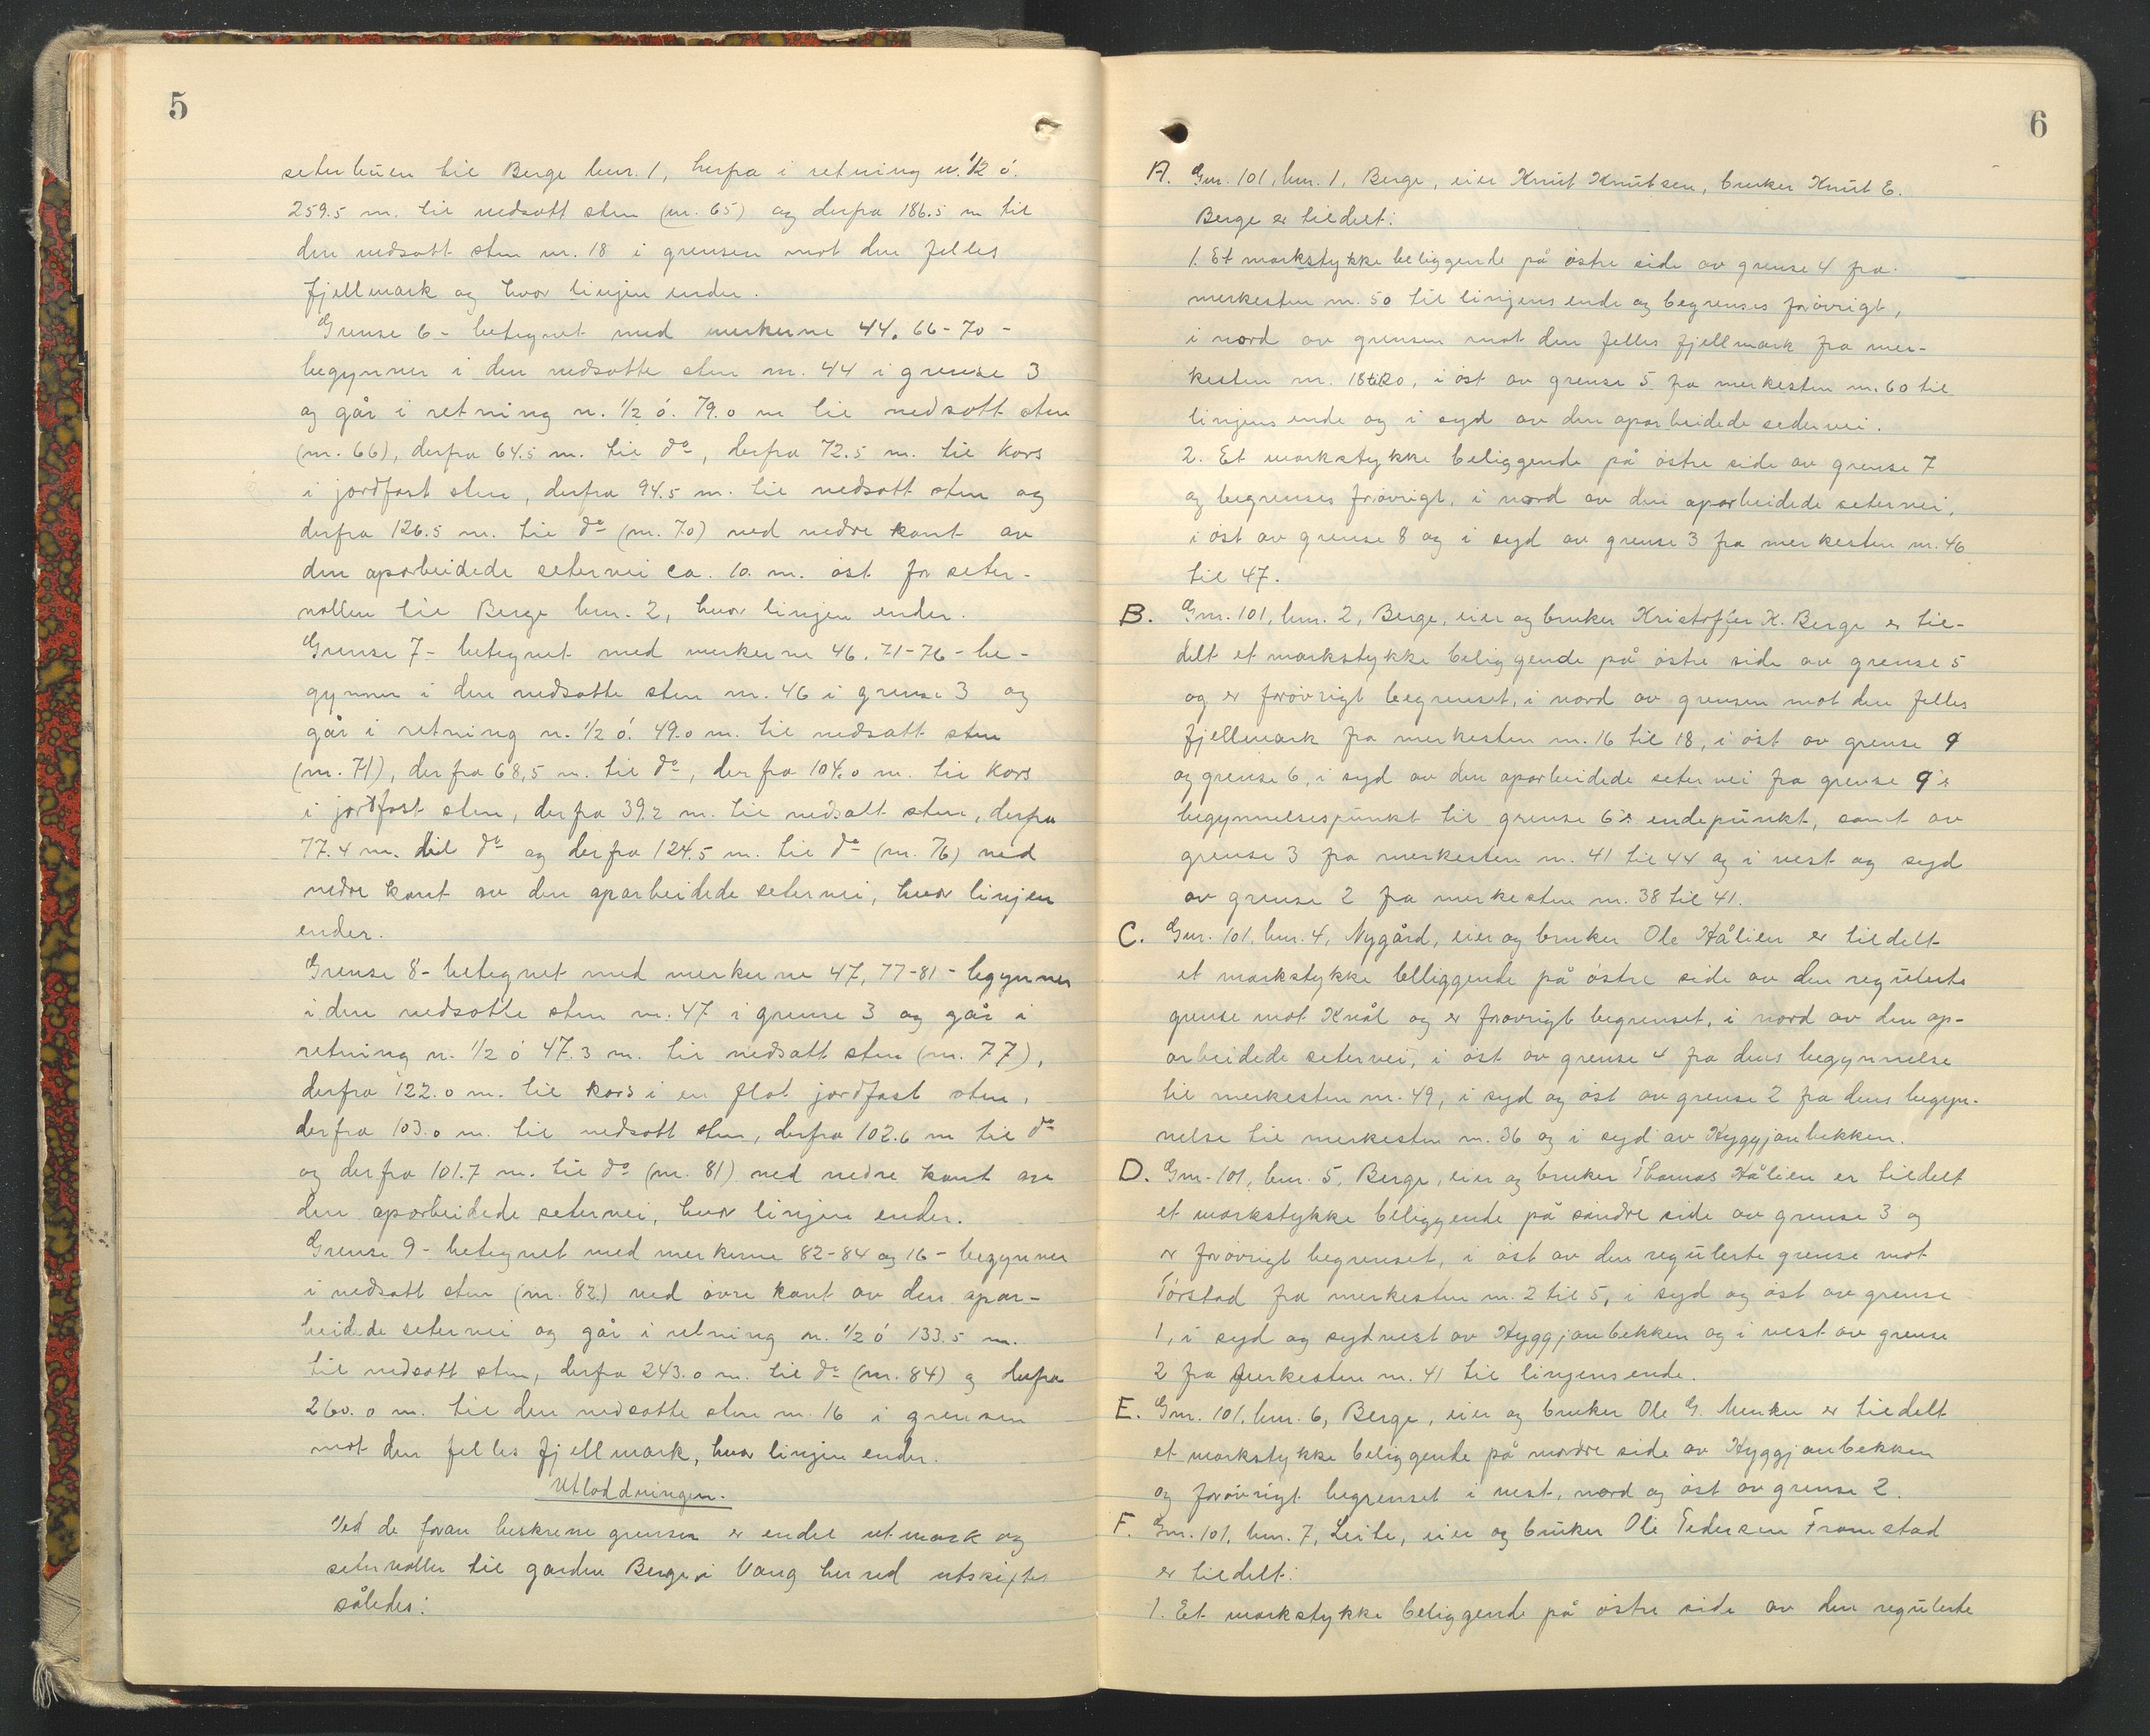 5
seterbuen til Berge bnr. 1, herfra i retning n. 1/2 ó.
259.5 m. til nedsatt sten (nr. 65) og derfra 186.5 m til
den nedsatt sten nr. 18 i grensen mot den felles
fjellmark og hvor linjen ender.
Grense 6 - betegnet med merkerne 44. 66-70 -
begynner i den nedsatte sten nr. 44 i grense 3
og går i retning n. 1/2 ó. 79.0 m til nedsatt sten
(nr. 66), derfra 64.5 m. til do, derfra 72.5 m. til kors
i jordfast sten, derfra 94.5 m. til nedsatt sten og
derfra 126.5 m. til do (nr. 70) ved nedre kant av
den oparbeidede setervei ca. 10. m. øst for seter-
vollen til Berge bnr. 2, hvor linjen ender.
Grense 7 - betegnet med merkerne 46. 71-76 - be-
gynner i den nedsatte sten nr. 46 i grense 3 og
går i retning n. 1/2 ó. 49.0 m. til nedsatt sten
(nr. 71), derfra 68,5 m. til do, derfra 104.0 m. til kors
i jordfast sten, derfra 39.2 m. til nedsatt sten, derfra
77.4 m. til do og derfra 124.5 m. til do (nr. 76) ved
nedre kant av den oparbeidede setervei, hvor linjen
ender.
Grense 8 - betegnet med merkerne 47, 77-81 - begynner
i den nedsatte sten nr. 47 i grense 3 og går i
retning n. 1/2 ó 47.3 m. til nedsatt sten (nr. 77),
derfra 122.0 m. til kors i en flat jordfast sten,
derfra 103.0 m. til nedsatt sten, derfra 102.6 m til do
og derfra 101.7 m. til do (nr. 81) ved nedre kant av
den oparbeidede setervei, hvor linjen ender.
Grense 9 - betegnet med merkerne 82-84 og 16 - begynner
i nedsatt sten (nr. 82) ved øvre kant av den opar-
beidede setervei og går i retning n. 1/2 ó 133.5 m.
til nedsatt sten, derfra 243.0 m. til do (nr. 84) og derfra
260.0 m. til den nedsatte sten nr. 16 i grensen
mot den felles fjellmark, hvor linjen ender.
Utloddningen.
Ved de foran beskrevne grenser er endel utmark og
setervoller til garden Berge i Vang herred utskiftet
således:
6
A. Gnr. 101, bnr. 1, Berge, eier Knut Knutsen, bruker Knut E.
Berge er tildelt:
1. Et markstykke beliggende på østre side av grense 4 fra
merkesten nr. 50 til linjens ende og begrenses forøvrigt,
i nord av grensen mot den felles fjellmark fra mer-
kesten nr. 18 til 20, i øst av grense 5 fra merkesten nr. 60 til
linjens ende og i syd av den oparbeidede setervei.
2. Et markstykke beliggende på østre side av grense 7
og begrenses forøvrigt, i nord av den oparbeidede setervei,
i øst av grense 8 og i syd av grense 3 fra merkesten nr. 46
til 47.
B. Gnr. 101, bnr. 2, Berge, eier og bruker Kristoffer K. Berge er til-
delt et markstykke beliggende på østre side av grense 5
og er forøvrigt begrenset, i nord av grensen mot den felles
fjellmark fra merkesten nr. 16 til 18, i øst av grense 9
og grense 6, i syd av den oparbeidede setervei fra grense 9's
begynnelsespunkt til grense 6's endepunkt, samt av
grense 3 fra merkesten nr. 41 til 44 og i vest og syd
av grense 2 fra merkesten nr. 38 til 41.
C. Gnr. 101, bnr. 4, Nygård, eier og bruker Ole Hålien er tildelt
et markstykke beliggende på østre side av den regulerte
grense mot Kvål og er forøvrigt begrenset, i nord av den op-
arbeidede setervei, i øst av grense 4 fra dens begynnelse
til merkesten nr. 49, i syd og øst av grense 2 fra dens begyn-
nelse til merkesten nr. 36 og i syd av Hyggjanbekken.
D. Gnr. 101, bnr. 5, Berge, eier og bruker Thomas Hålien er tildelt
et markstykke beliggende på søndre side av grense 3 og
er forøvrigt begrenset, i øst av den regulerte grense mot
Tørstad fra merkesten nr. 2 til 5, i syd og øst av grense
1, i syd og sydvest av Hyggjanbekken og i vest av grense
2 fra merkesten nr. 41 til linjens ende.
E. Gnr. 101, bnr. 6, Berge, eier og bruker Ole G. er tildelt
et markstykke beliggende på nordre side av Hyggjanbekken
og forøvrigt begrenset i vest, nord og øst av grense 2.
F. Gnr. 101, bnr. 7, Leite, eier og bruker Ole Pedersen Framstad
er tildelt:
1. Et markstykke beliggende på østre side av den regulerte